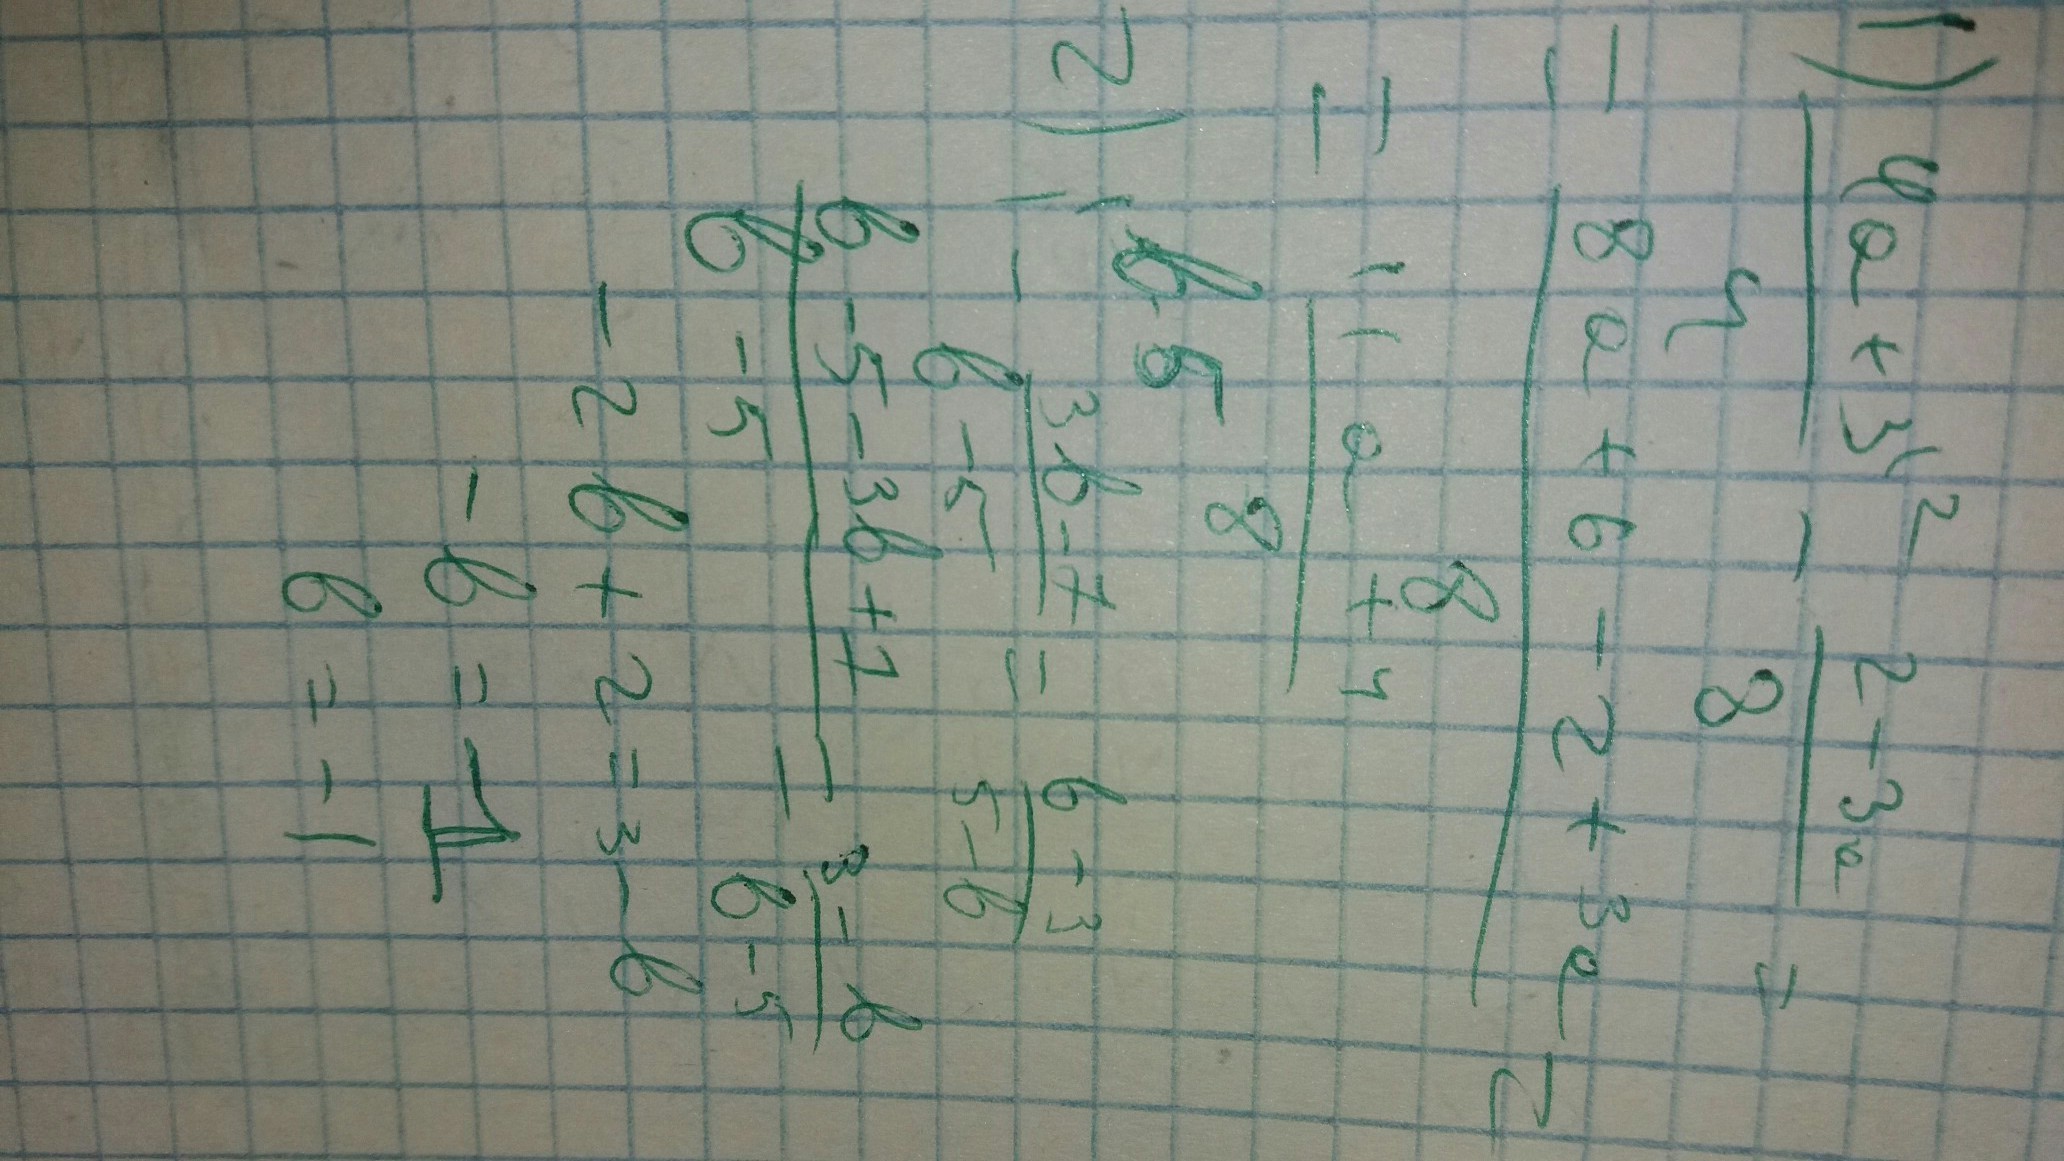 1) 4a+3² - 2-3a =
4 8
= 8a+6-2+3a =
8
= 11a+4
8
2) b 5
1 - 3b-7 = b-3
b-5 5-b
b-5-3b+7 = 3-b
b-5 b-5
-2b+2=3-b
-b=1
b=-1